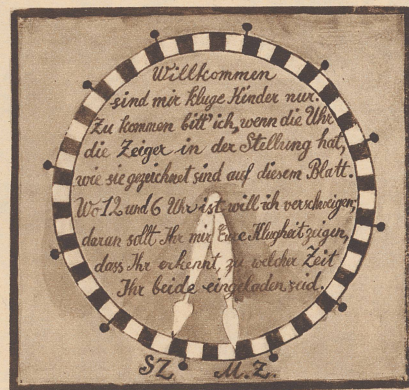 Willkommen
sind mir kluge Kinder nur.
Zu kommen bitt' ich, wenn die Uhr
die Zeiger in der Stellung hat,
wie sie gezeichnet sind auf diesem Blatt.
Wo 12 und 6 Uhr ist will ich verschweigen,
daran sollt Ihr mir Eure Klugheit zeigen,
dass Ihr erkennt, zu welcher Zeit
Ihr beide eingeladen seid.
SZ M.Z.